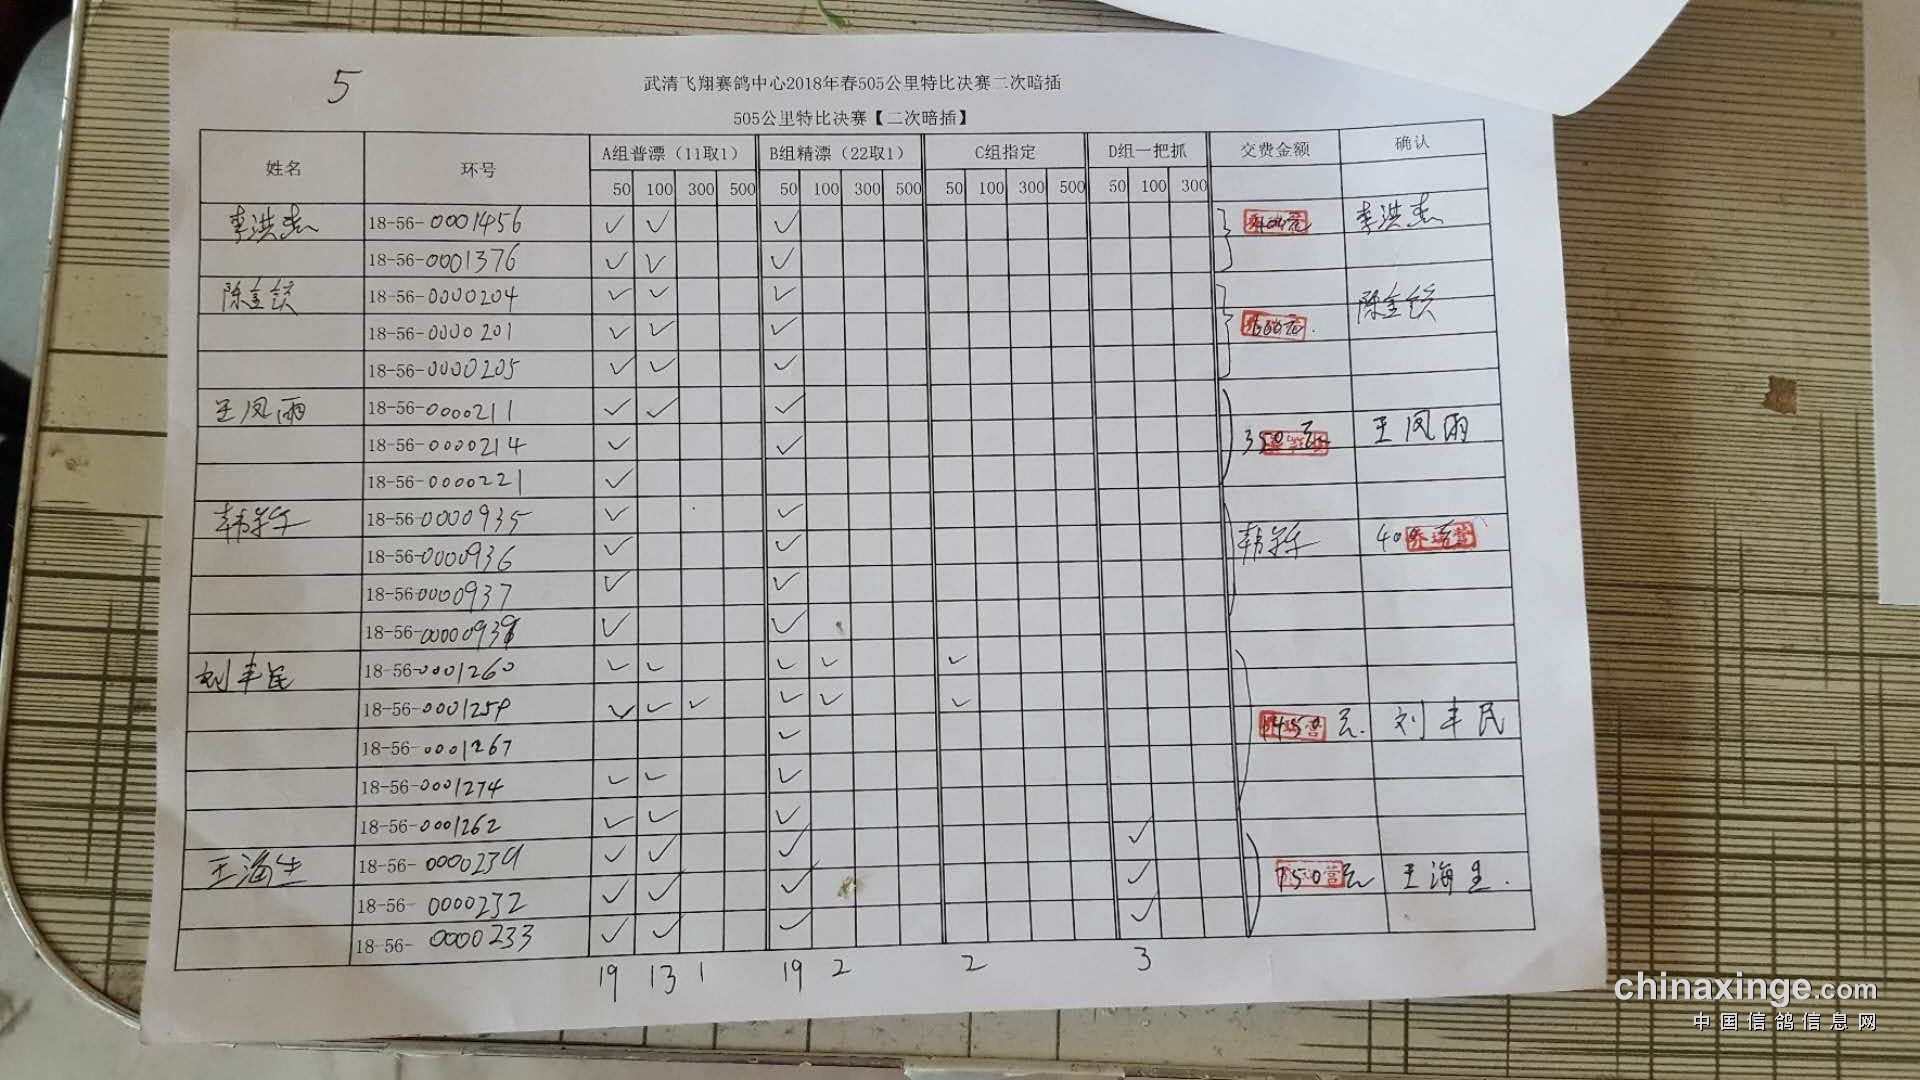 5
武清飞翔赛鸽中心2018年春505公里特比决赛二次暗插
505公里特比决赛【二次暗插】
姓名 环号 A组普漂（11取1） B组精漂（22取1） C组指定 D组一把抓 交费金额 确认
50 100 300 500 50 100 300 500 50 100 300 500 50 100 300
李洪杰 18-56-0001456 ✓ ✓ ✓ 李洪杰
18-56-0001376 ✓ ✓ ✓
陈金钗 18-56-0000204 ✓ ✓ ✓ 陈金钗
18-56-0000201 ✓ ✓ ✓ 600元.
18-56-0000205 ✓ ✓ ✓
王凤雨 18-56-0000211 ✓ ✓ ✓
18-56-0000214 ✓ ✓ 350元 王凤雨
18-56-0000221 ✓
18-56-0000935 ✓ ✓
18-56-0000936 ✓ ✓ 400元
18-56-0000937 ✓ ✓
18-56-0000093 ✓ ✓
刘丰民 18-56-0001260 ✓ ✓ ✓ ✓ ✓
18-56-0001259 ✓ ✓ ✓ ✓ ✓ ✓
18-56-0001267 ✓ 1450元. 刘丰民
18-56-0001274 ✓ ✓ ✓
18-56-0001262 ✓ ✓ ✓
王海生 18-56-0000239 ✓ ✓ ✓ ✓
18-56-0000232 ✓ ✓ ✓ ✓ 750元 王海生.
18-56-0000233 ✓ ✓ ✓ ✓
19 13 1 19 2 2 3
chinaxinge.com
中国信鸽信息网